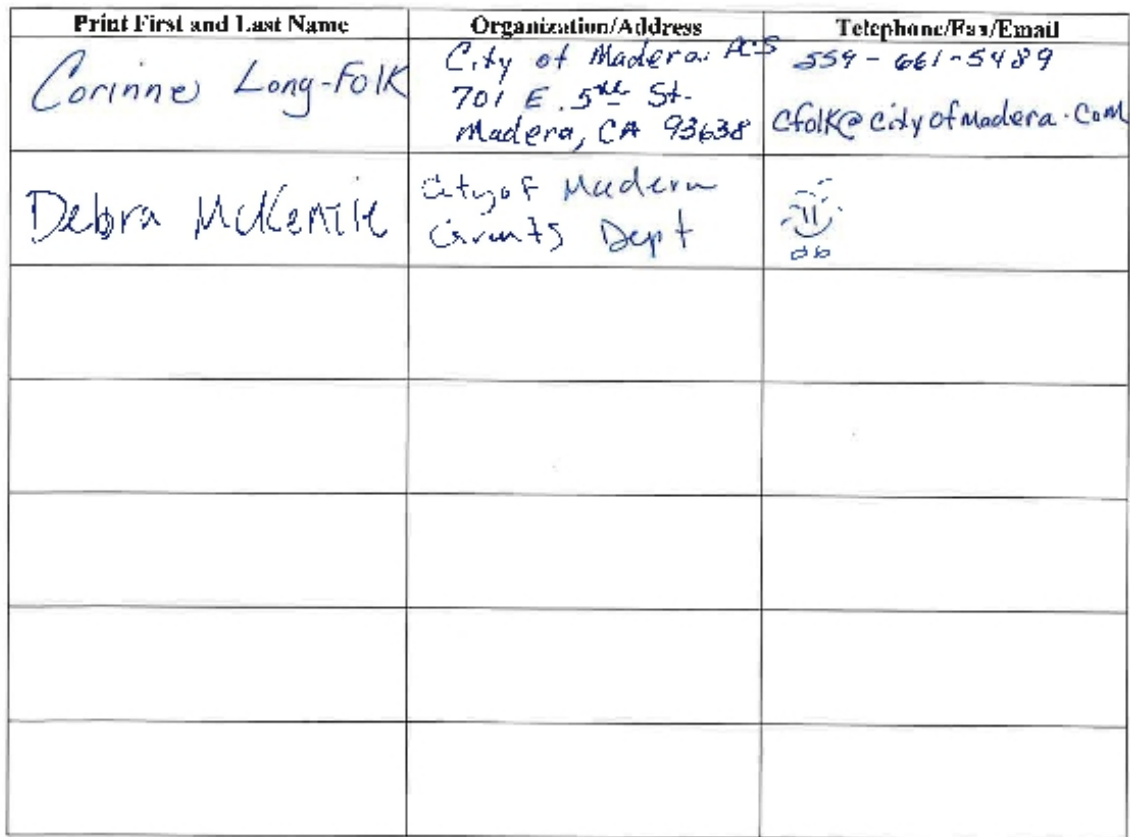 Print First and Last Name
Organization/Address
Telephone/Fax/Email
Corinne Long-Folk
City of Madera: PCS
701 E. 5th St.
Madera, CA 93638
559-661-5489
Cfolk@cityofmadera.com
Debra McKenzie
City of Madera
Grants Dept